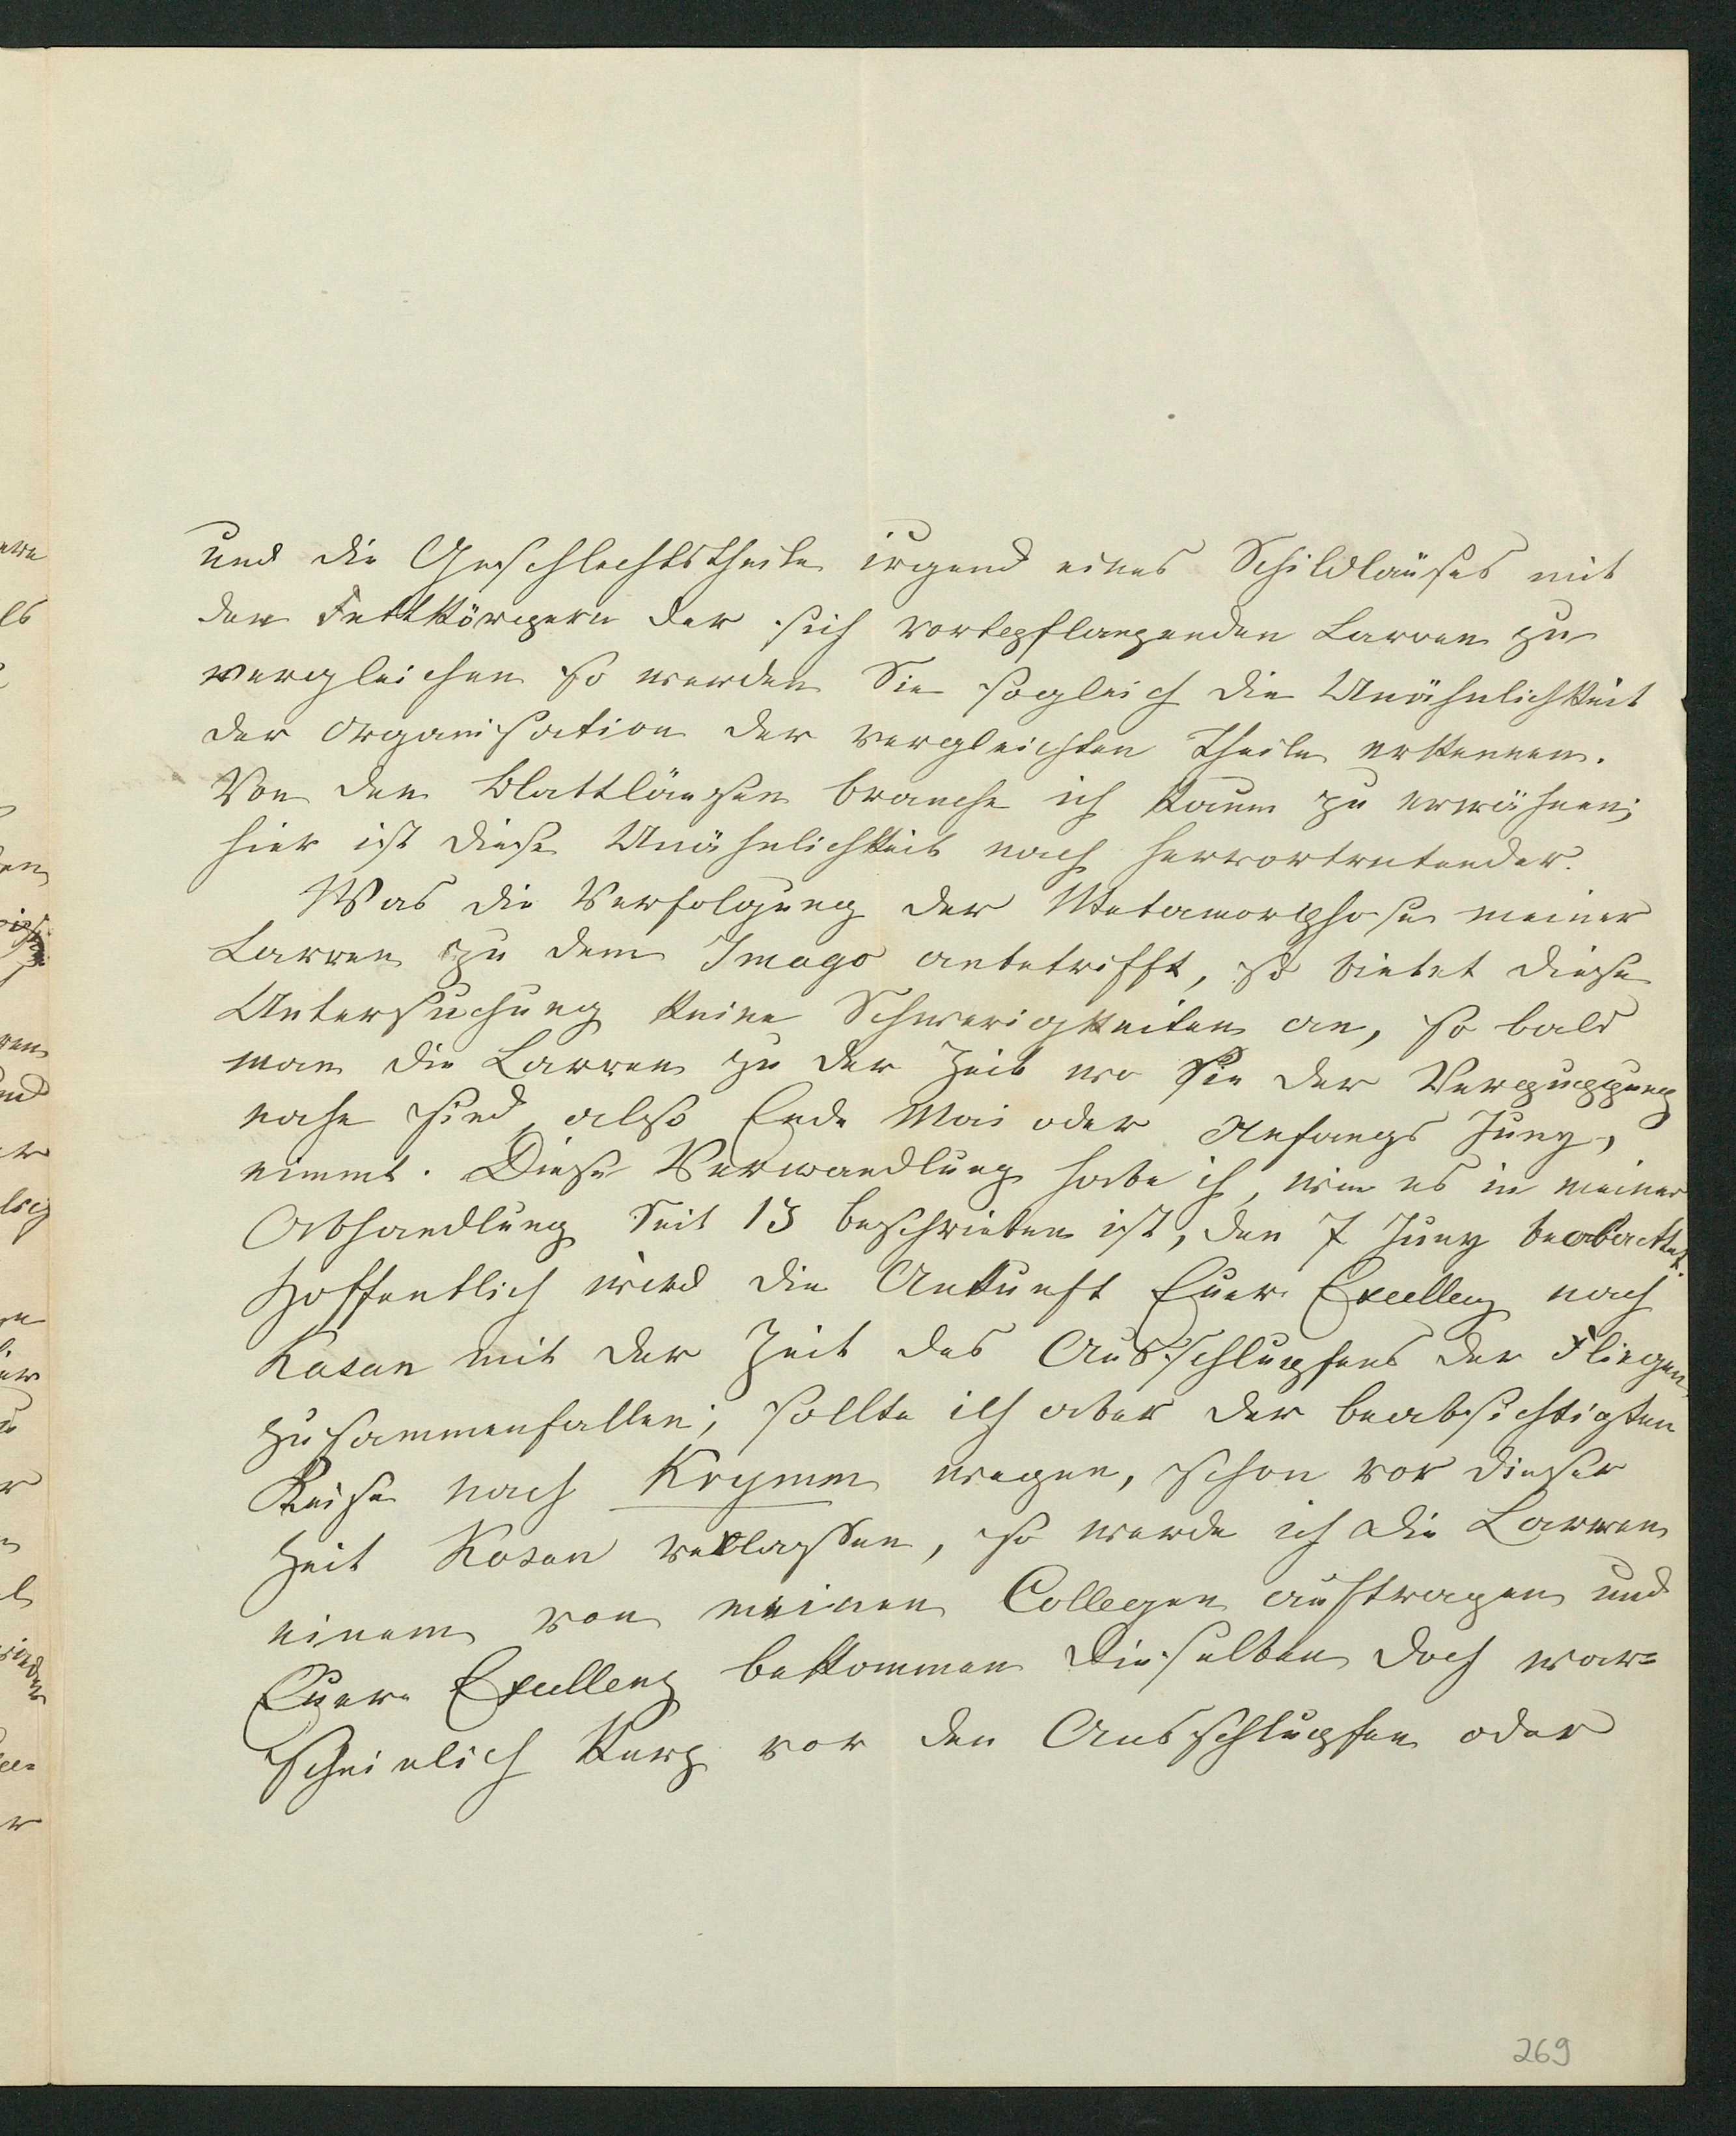 und die Geschlechtstheile irgend eines Schildläuses mit
den Fettkörpern der sich vortepflanzenden Larven zu
vergleichen so werden Sie sogleich die Unähnlichkeit
der Organisation der vergleichten Theile erkennen.
Von den Blattläusen brauche ich kaum zu erwähnen;
hier ist diese Unähnlichkeit noch hervortretender.
Was die Verfolgung der Metamorphose meiner
Larven zu dem Imago anbetrifft, so bietet diese
Untersuchung keine Schwerigkeiten an, so bald
man die Larven zu der Zeit wo sie der Verpuppung
nahe sind, also Ende Mai oder Anfangs Juny,
nimmt. Diese Verwandlung habe ich, wie es in meiner
Abhandlung Seit 13 beschrieben ist, den 7 Juny beobachtet.
Hoffentlich wird die Ankunft Euer Excellenz nach
Kasan mit der Zeit des Ausschlupfens der Fliegen
zusammenfallen; sollte ich aber der beabsichtigten
Reise nach Krymm wegen, schon vor dieser
Zeit Kasan verlassen, so werde ich die Larven
einem von meinen Collegen auftragen und
Euer Excellenz bekommen dieselben doch war-
scheinlich kurz vor den Ausschlupfen oder
269